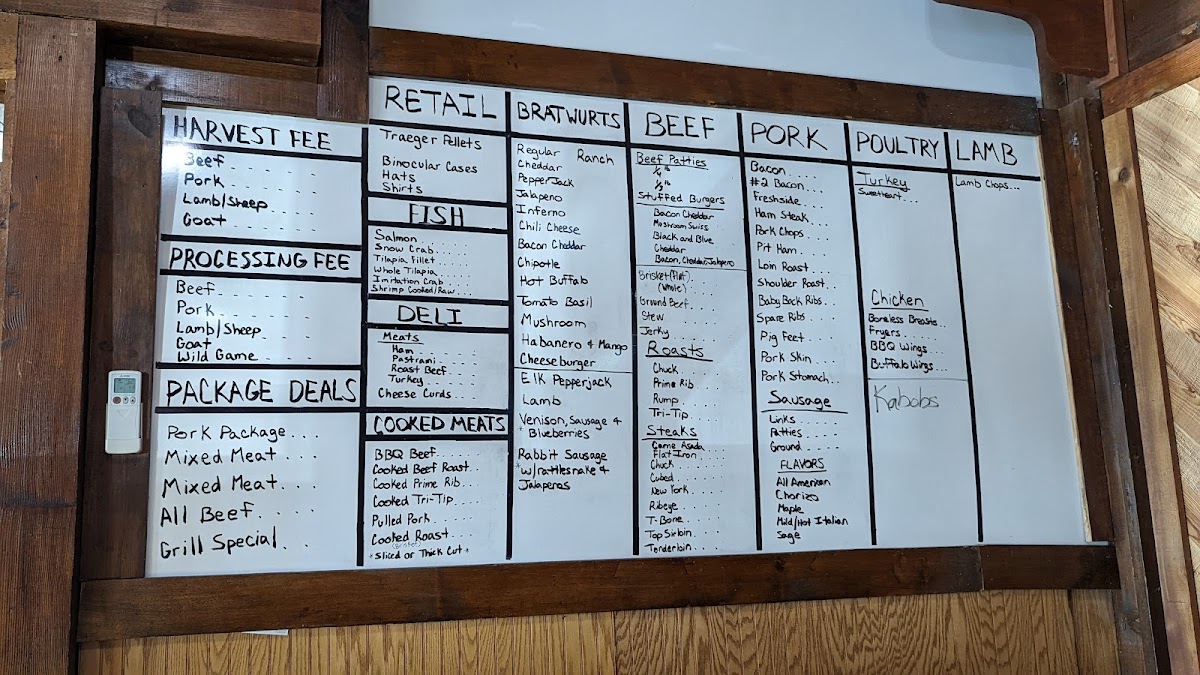 HARVEST FEE
Beef
Pork
Lamb/Sheep
Goat
PROCESSING FEE
Beef
Pork
Lamb/Sheep
Goat
Wild Game
PACKAGE DEALS
Pork Package...
Mixed Meat
Mixed Meat
All Beef
Grill Special
RETAIL
Traeger Pellets
Binocular Cases
Hats
Shirts
FISH
Salmon
Snow Crab
Tilapia Fillet
Whole Tilapia
Imitation Crab
Shrimp Cooked/Raw
DELI
Meats
Ham
Pastrami
Roast Beef
Turkey
Cheese Curds
COOKED MEATS
BBQ Beef
Cooked Beef Roast
Cooked Prime Rib
Cooked Tri-Tip
Pulled Pork
Cooked Roast
(Brisket)
*Sliced or Thick Cut*
BRATWURTS
Regular Ranch
Cheddar
PepperJack
Jalapeno
Inferno
Chili Cheese
Bacon Cheddar
Chipotle
Hot Buffalo
Tomato Basil
Mushroom
Habanero & Mango
Cheeseburger
Elk Pepperjack
Lamb
Venison, Sausage &
* Blueberries
Rabbit Sausage
*w/rattlesnake &
Jalapenos
BEEF
Beef Patties
1/4 lb
1/3 lb
Stuffed Burgers
Bacon Cheddar
Mushroom Swiss
Black and Blue
Cheddar
Bacon, Cheddar, Jalapeno
Brisket (Flat)
(Whole)
Ground Beef
Stew
Jerky
Roasts
Chuck
Prime Rib
Rump
Tri-Tip
Steaks
Carne Asada
Flat Iron
Chuck
Cubed
New York
Ribeye
T-Bone
Top Sirloin
Tenderloin
PORK
Bacon
#2 Bacon
Freshside
Ham Steak
Pork Chops
Pit Ham
Loin Roast
Shoulder Roast
Baby Back Ribs
Spare Ribs
Pig Feet
Pork Skin
Pork Stomach
Sausage
Links
Patties
Ground
FLAVORS
All American
Chorizo
Maple
Mild/Hot Italian
Sage
POULTRY
Turkey
Sweetheart...
Chicken
Boneless Breasts..
Fryers
BBQ Wings...
Buffalo Wings...
Kabobs
LAMB
Lamb Chops...